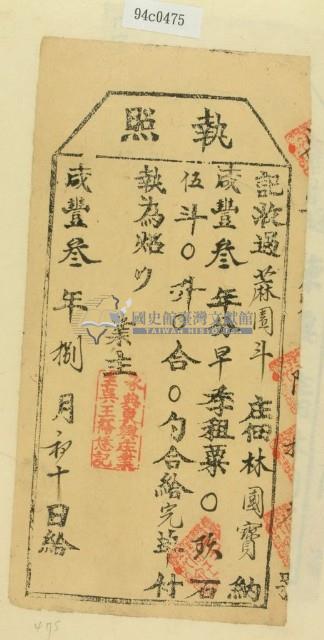 94c0475
執照
記浟過蔴園斗庄佃林國寶納
咸豐叁年分早季租粟〇玖石
伍斗〇升〇合〇勺合給完單付
執為炤
業主
咸豐叁年捌月初十日給
國史館臺灣文獻館
TAIWAN HISTORICA
475